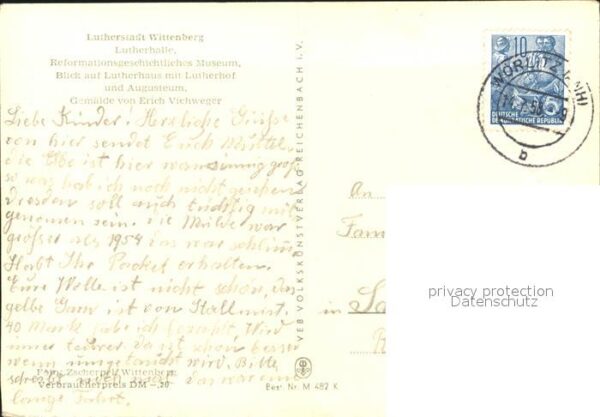 Lutherstadt Wittenberg
Lutherhalle,
Reformationsgeschichtliches Museum,
Blick auf Lutherhaus mit Lutherhof
und Augusteum,
Gemälde von Erich Viehweger
Liebe Kinder! Herzliche Grüße
von hier sendet Euch
die Elbe ist hier wahnsinnig groß
so was hab ich noch nicht gesehen
Dresden soll auch tüchtig mit
genomen sein. Die Mulde war
größer als 1954 das war schlimm
Habt Ihr Packet erhalten.
Eure Wolle ist nicht schön, das
gelbe Garn ist von
40 Marke habe ich bezahlt. Wird
immer teurer da ist schon besser
wenn umgetauscht wird. Bitte
schreibt das war eine
lange Fahrt.
Fa. Aug. Zscherpel, Wittenberg
Verbraucherpreis DM -,20
VEB VOLKSKUNSTVERLAG REICHENBACH I. V.
Best.-Nr. M 482 K
10
DEUTSCHE
DEMOKRATISCHE REPUBLIK
5
WÖRLITZ
b
An
Fam
in
privacy protection
Datenschutz